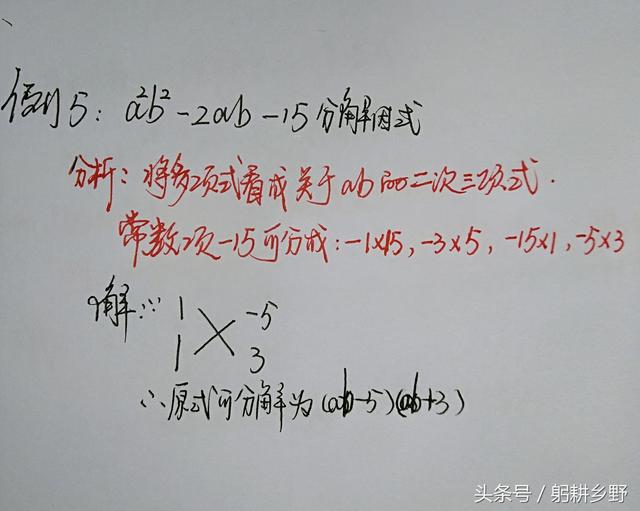 例5：a²b²-2ab-15分解因式
分析：将多项式看成关于ab的二次三项式.
常数项-15可分成：-1×15，-3×5，-15×1，-5×3
解∵ 1 -5
1 3
∴原式可分解为(ab-5)(ab+3)
头条号／躬耕乡野